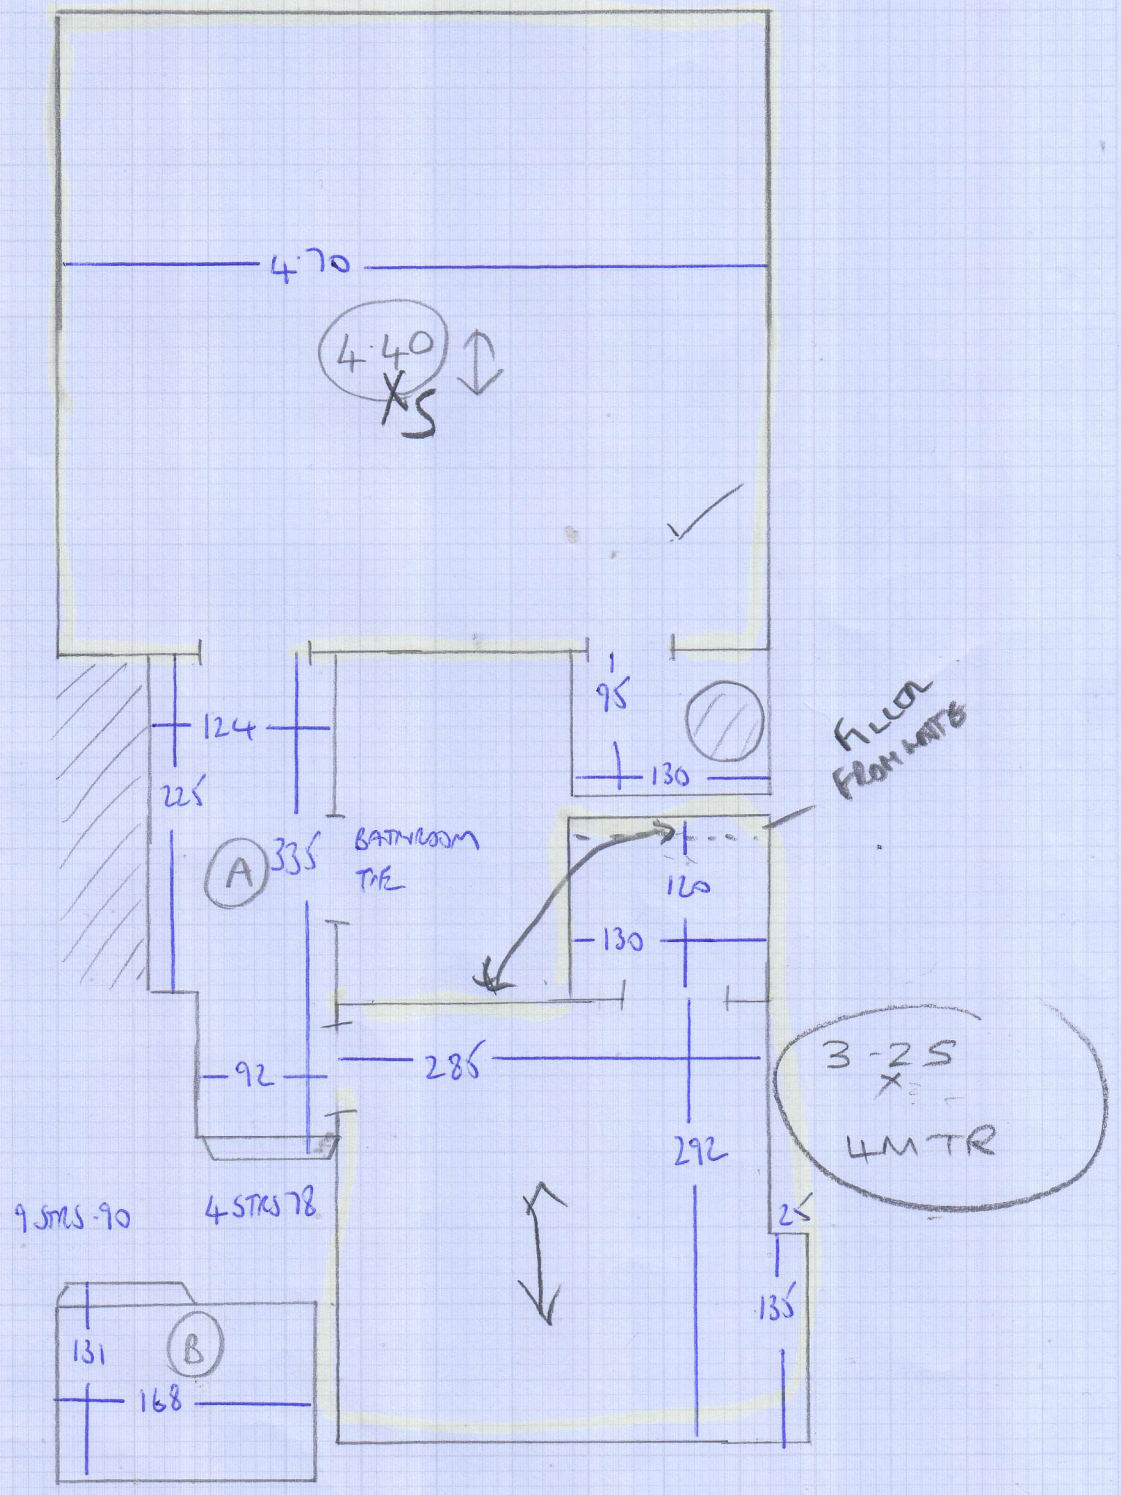 4.70
4.40
XS
95
124
130
225
FILLER
FROM WASTE
A
335
BATHROOM
TILE
120
130
285
92
3-25
X
4MTR
292
25
9 STRS-90
4 STRS 78
135
131
B
168